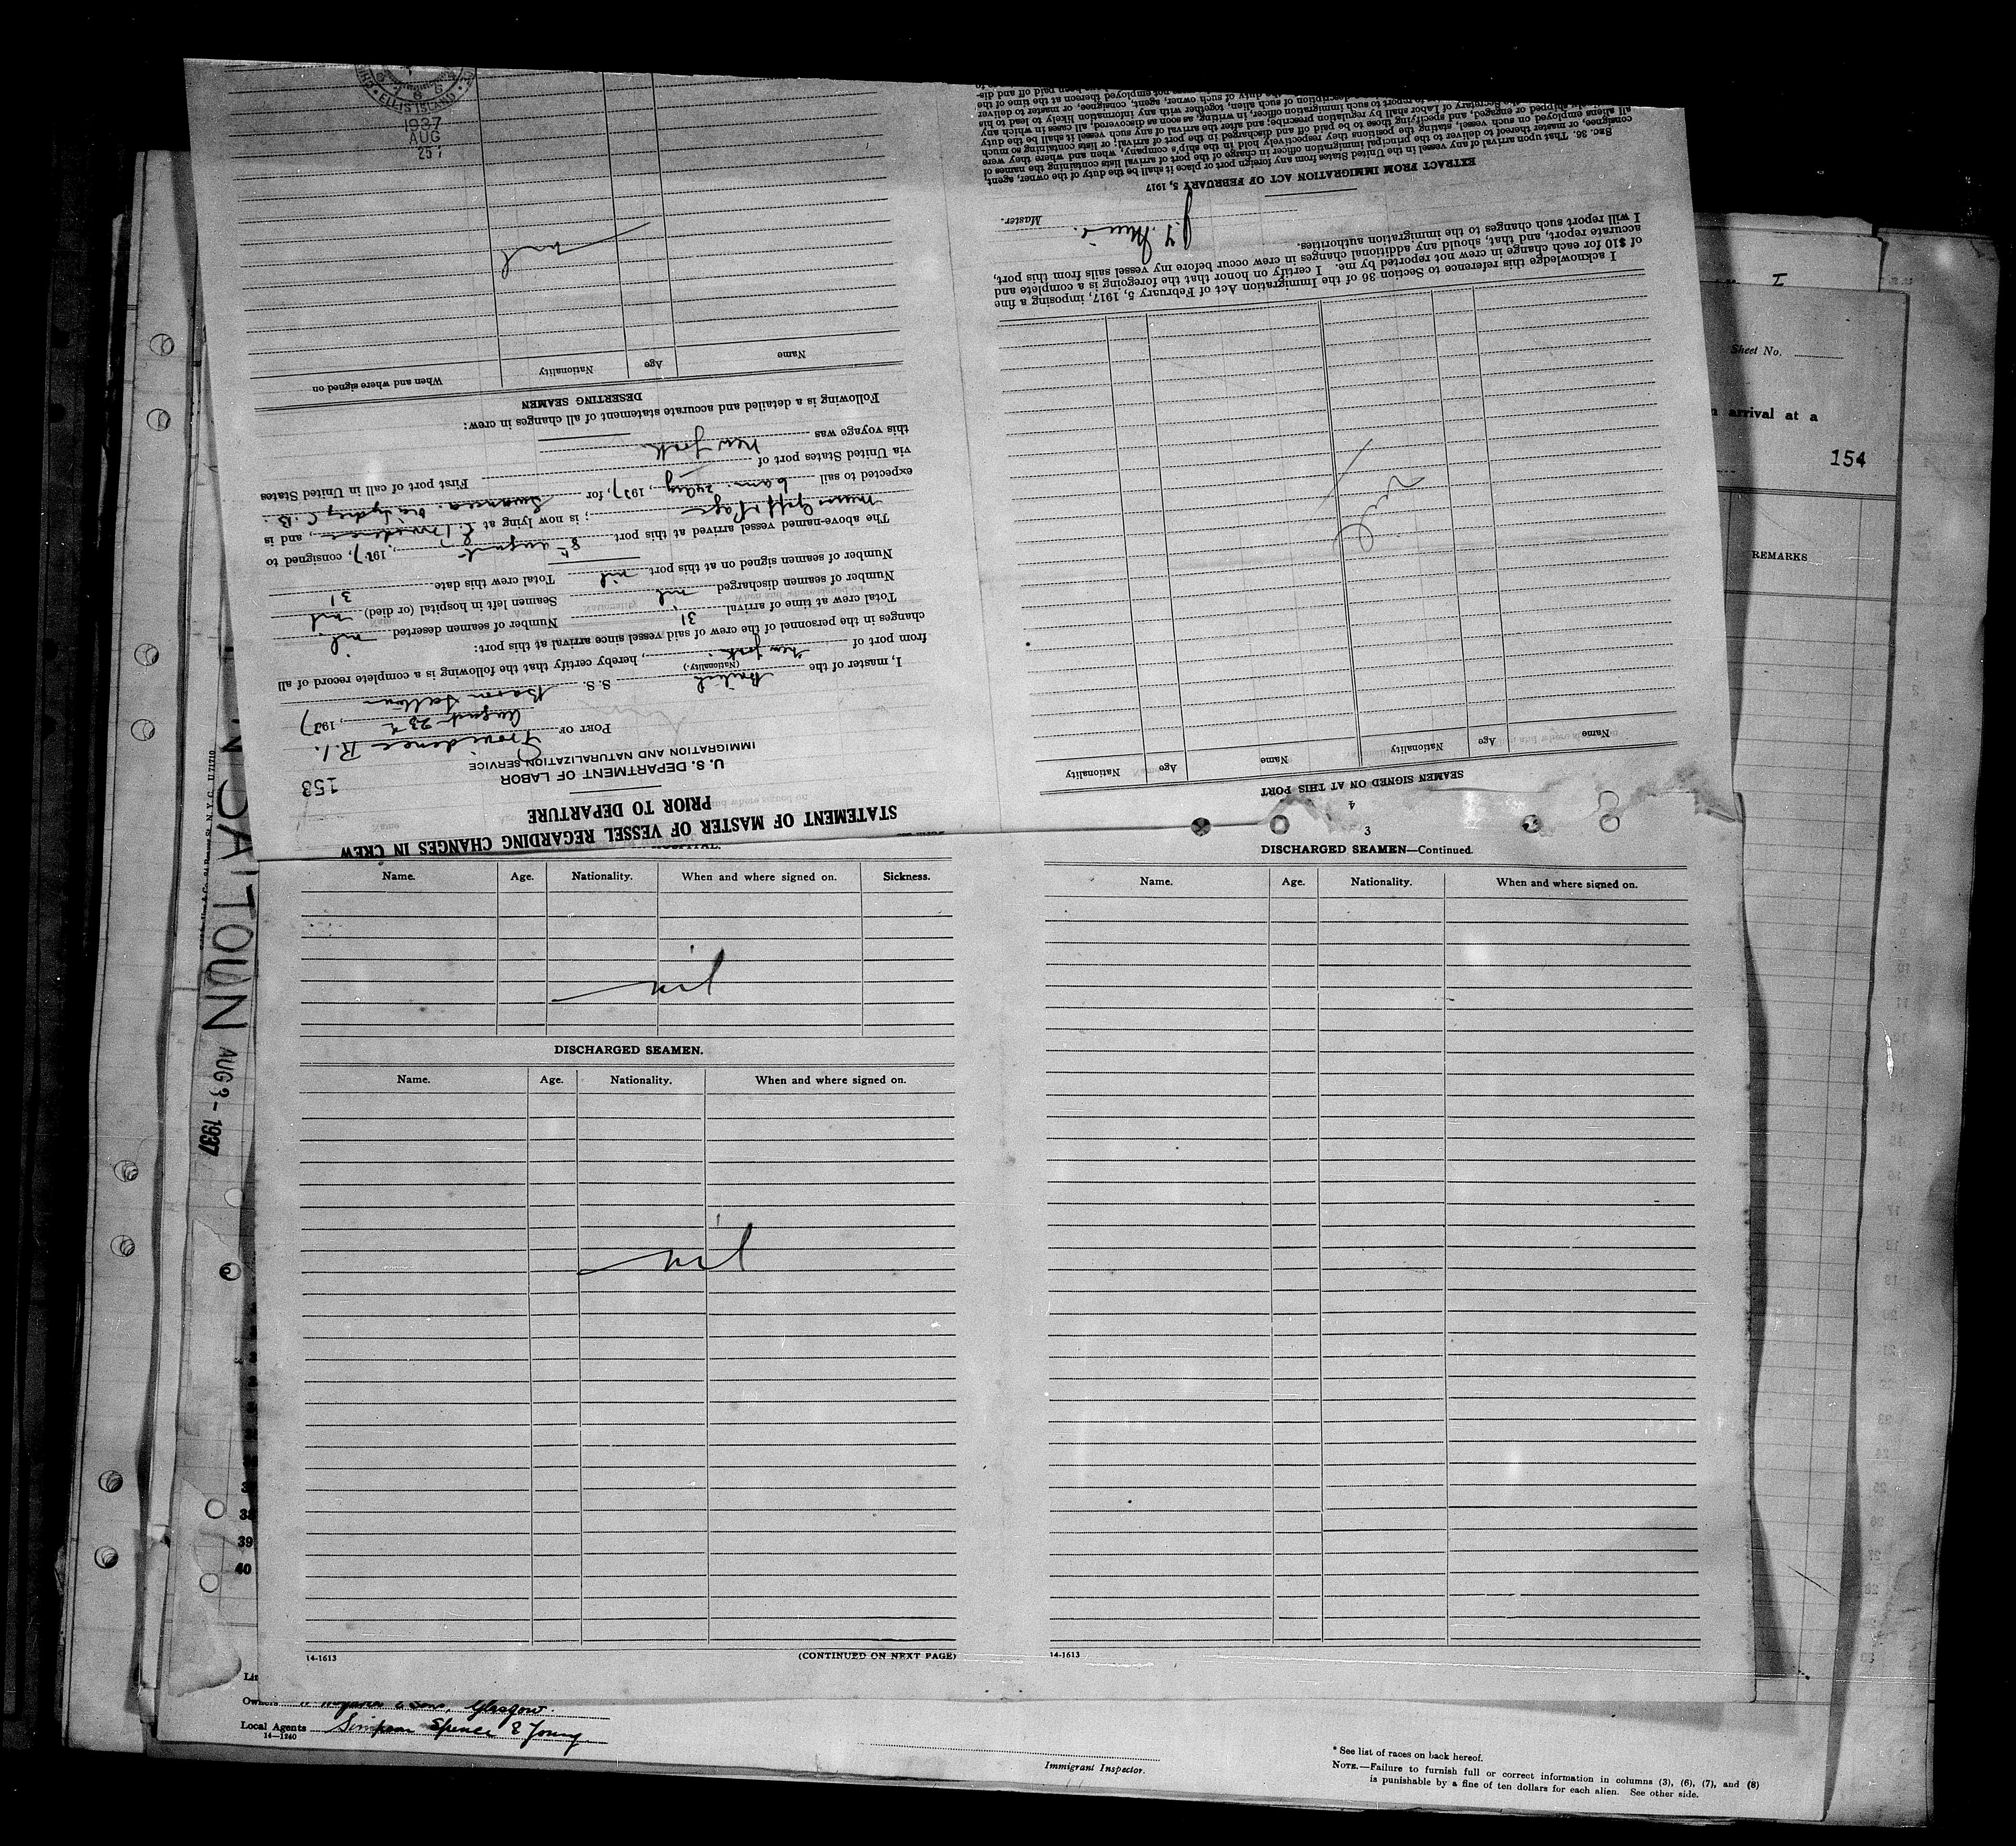 STATEMENT OF MASTER OF VESSEL REGARDING CHANGES IN CREW
PRIOR TO DEPARTURE
U. S. DEPARTMENT OF LABOR
IMMIGRATION AND NATURALIZATION SERVICE
153
PORT OF Providence R.I.
August 23, 1937
I, master of the British S. S. Baron
(Nationality.)
from port of New York, hereby certify that the following is a complete record of all
changes in the personnel of the crew of said vessel since arrival at this port:
Total crew at time of arrival 31 Number of seamen deserted nil
Number of seamen discharged nil Seamen left in hospital (or died) nil
Number of seamen signed on at this port nil Total crew this date 31
The above-named vessel arrived at this port 8th August, 1937, consigned to
; is now lying at E. Providence, and is
expected to sail 6 am. Aug, 1937, for Swansea. via Sydney, C.B.
via United States port of First port of call in United States
this voyage was New York
Following is a detailed and accurate statement of all changes in crew:
DESERTING SEAMEN
Name Age Nationality When and where signed on
nil
25
AUG
1937
ELLIS ISLAND
4
SEAMEN SIGNED ON AT THIS PORT
Name Age Nationality Name Age Nationality
nil
I acknowledge this reference to Section 36 of the Immigration Act of February 5, 1917, imposing a fine
of $10 for each change in crew not reported by me. I certify on honor that the foregoing is a complete and
accurate report, and that, should any additional changes in crew occur before my vessel sails from this port,
I will report such changes to the immigration authorities.
Master.
EXTRACT FROM IMMIGRATION ACT OF FEBRUARY 5, 1917
SEC. 36. That upon arrival of any vessel in the United States from any foreign port or place it shall be the duty of the owner, agent,
consignee, or master thereof to deliver to the principal immigration officer in charge of the port of arrival lists containing the names of
all aliens employed on such vessel, stating the positions they respectively hold in the ship's company, when and where they were
shipped or engaged, and specifying those to be paid off and discharged in the port of arrival; or lists containing so much
Secretary of Labor shall by regulation prescribe; and after the arrival of any such vessel it shall be the duty
to report to such immigration officer, in writing, as soon as discovered, all cases in which any
description of such alien, together with any information likely to lead to his
the duty of such owner, agent, consignee, or master to deliver
not employed thereon at the time of the
been paid off and dis-
Name. Age. Nationality. When and where signed on. Sickness.
nil
DISCHARGED SEAMEN.
Name. Age. Nationality. When and where signed on.
nil
14-1613 (CONTINUED ON NEXT PAGE)
3
DISCHARGED SEAMEN—Continued.
Name. Age. Nationality. When and where signed on.
14-1613
Sheet No.
arrival at a
154
REMARKS
AUG 3 - 1937
38
39
40
Owners & Sons, Glasgow.
Local Agents Simpson Spence & Young
14—1240
Immigrant Inspector.
* See list of races on back hereof.
NOTE.—Failure to furnish full or correct information in columns (3), (6), (7), and (8)
is punishable by a fine of ten dollars for each alien. See other side.